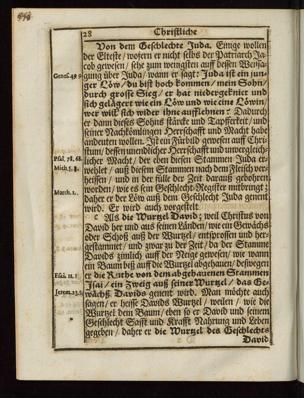 28
Christliche
Von dem Geschlechte Juda. Einige wollen
der Elteste / wofern er nicht selbst der Patriarch Ja-
cob gewesen / sehe zum wenigsten auff dessen Weissa-
Genes. 49. 9.
gung über Juda / wann er sagt: Juda ist ein jun-
ger Löw / du bist hoch kommen / mein Sohn /
durch grosse Sieg / er hat niedergekniet und
sich gelägert wie ein Löw und wie eine Löwin /
wer will sich wider ihne aufflehnen: Dadurch
er dann dieses Sohns stärcke und Tapfferkeit / und
seiner Nachkömlingen Herrschafft und Macht habe
andeuten wollen. Ist ein Fürbild gewesen auff Chri-
stum / dessen unendlicher Herrschafft und unvergleich-
Psal. 78. 68.
licher Macht / der eben diesen Stammen Juda er-
Mich. 5.
wehlet / auß diesem Stammen nach dem Fleisch wer-
heissen / und in der fülle der Zeit darauß gebohren
worden / wie es sein Geschlecht-Register mitbringt;
Matth. 1.
daher er der Löw auß dem Geschlecht Juda genent
wird. Er wird auch vorgestellt
Als die Wurtzel David; weil Christus von
David her und aus seinen Länden / wie ein Gewächs
oder Schoß auß der Wurtzel / entsprossen und her-
gestammet / und zwar zu der Zeit / da der Stamme
Davids zimlich auff der Neige gewesen / wie wann
ein Baum biß auff die Wurtzel abgehauen / deßwegen
er die Ruthe von dem abgehauenen Stammen
Esai. 11. 1.
Isai / ein Zweig auß seiner Wurtzel / das Ge-
Jerem. 23. 5.
wächß Davids genent wird. Man möchte auch
sagen / er heisse Davids Wurtzel / weilen / wie die
Wurtzel dem Baum / eben so er David und seinem
Geschlecht Safft und Krafft Nahrung und Leben
gegeben / daher er die Wurtzel des Geschlechts
David